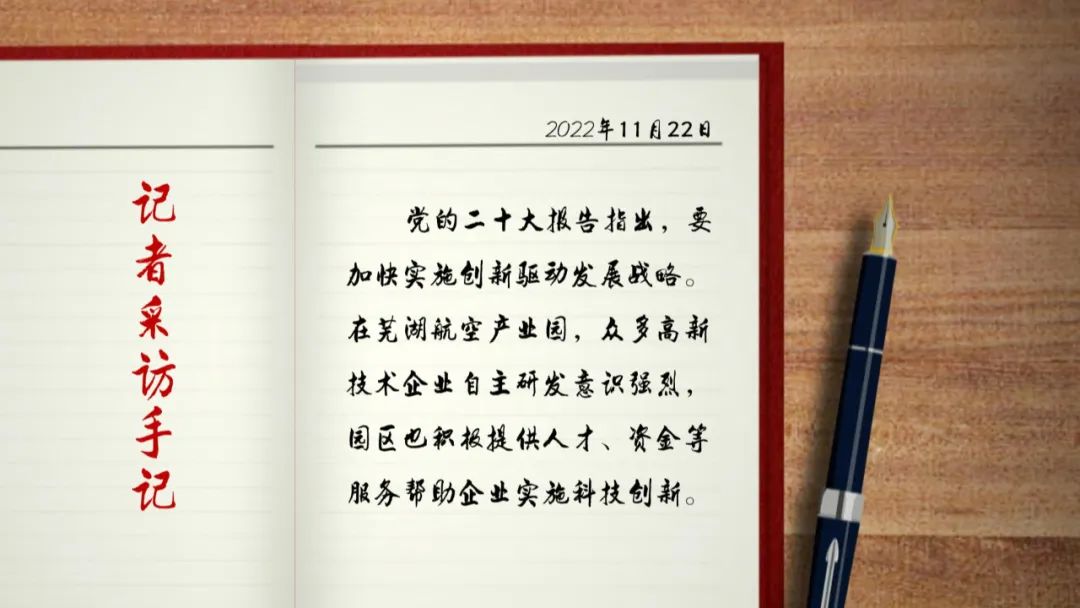 记者采访手记
2022年11月22日
党的二十大报告指出，要
加快实施创新驱动发展战略。
在芜湖航空产业园，众多高新
技术企业自主研发意识强烈，
园区也积极提供人才、资金等
服务帮助企业实施科技创新。